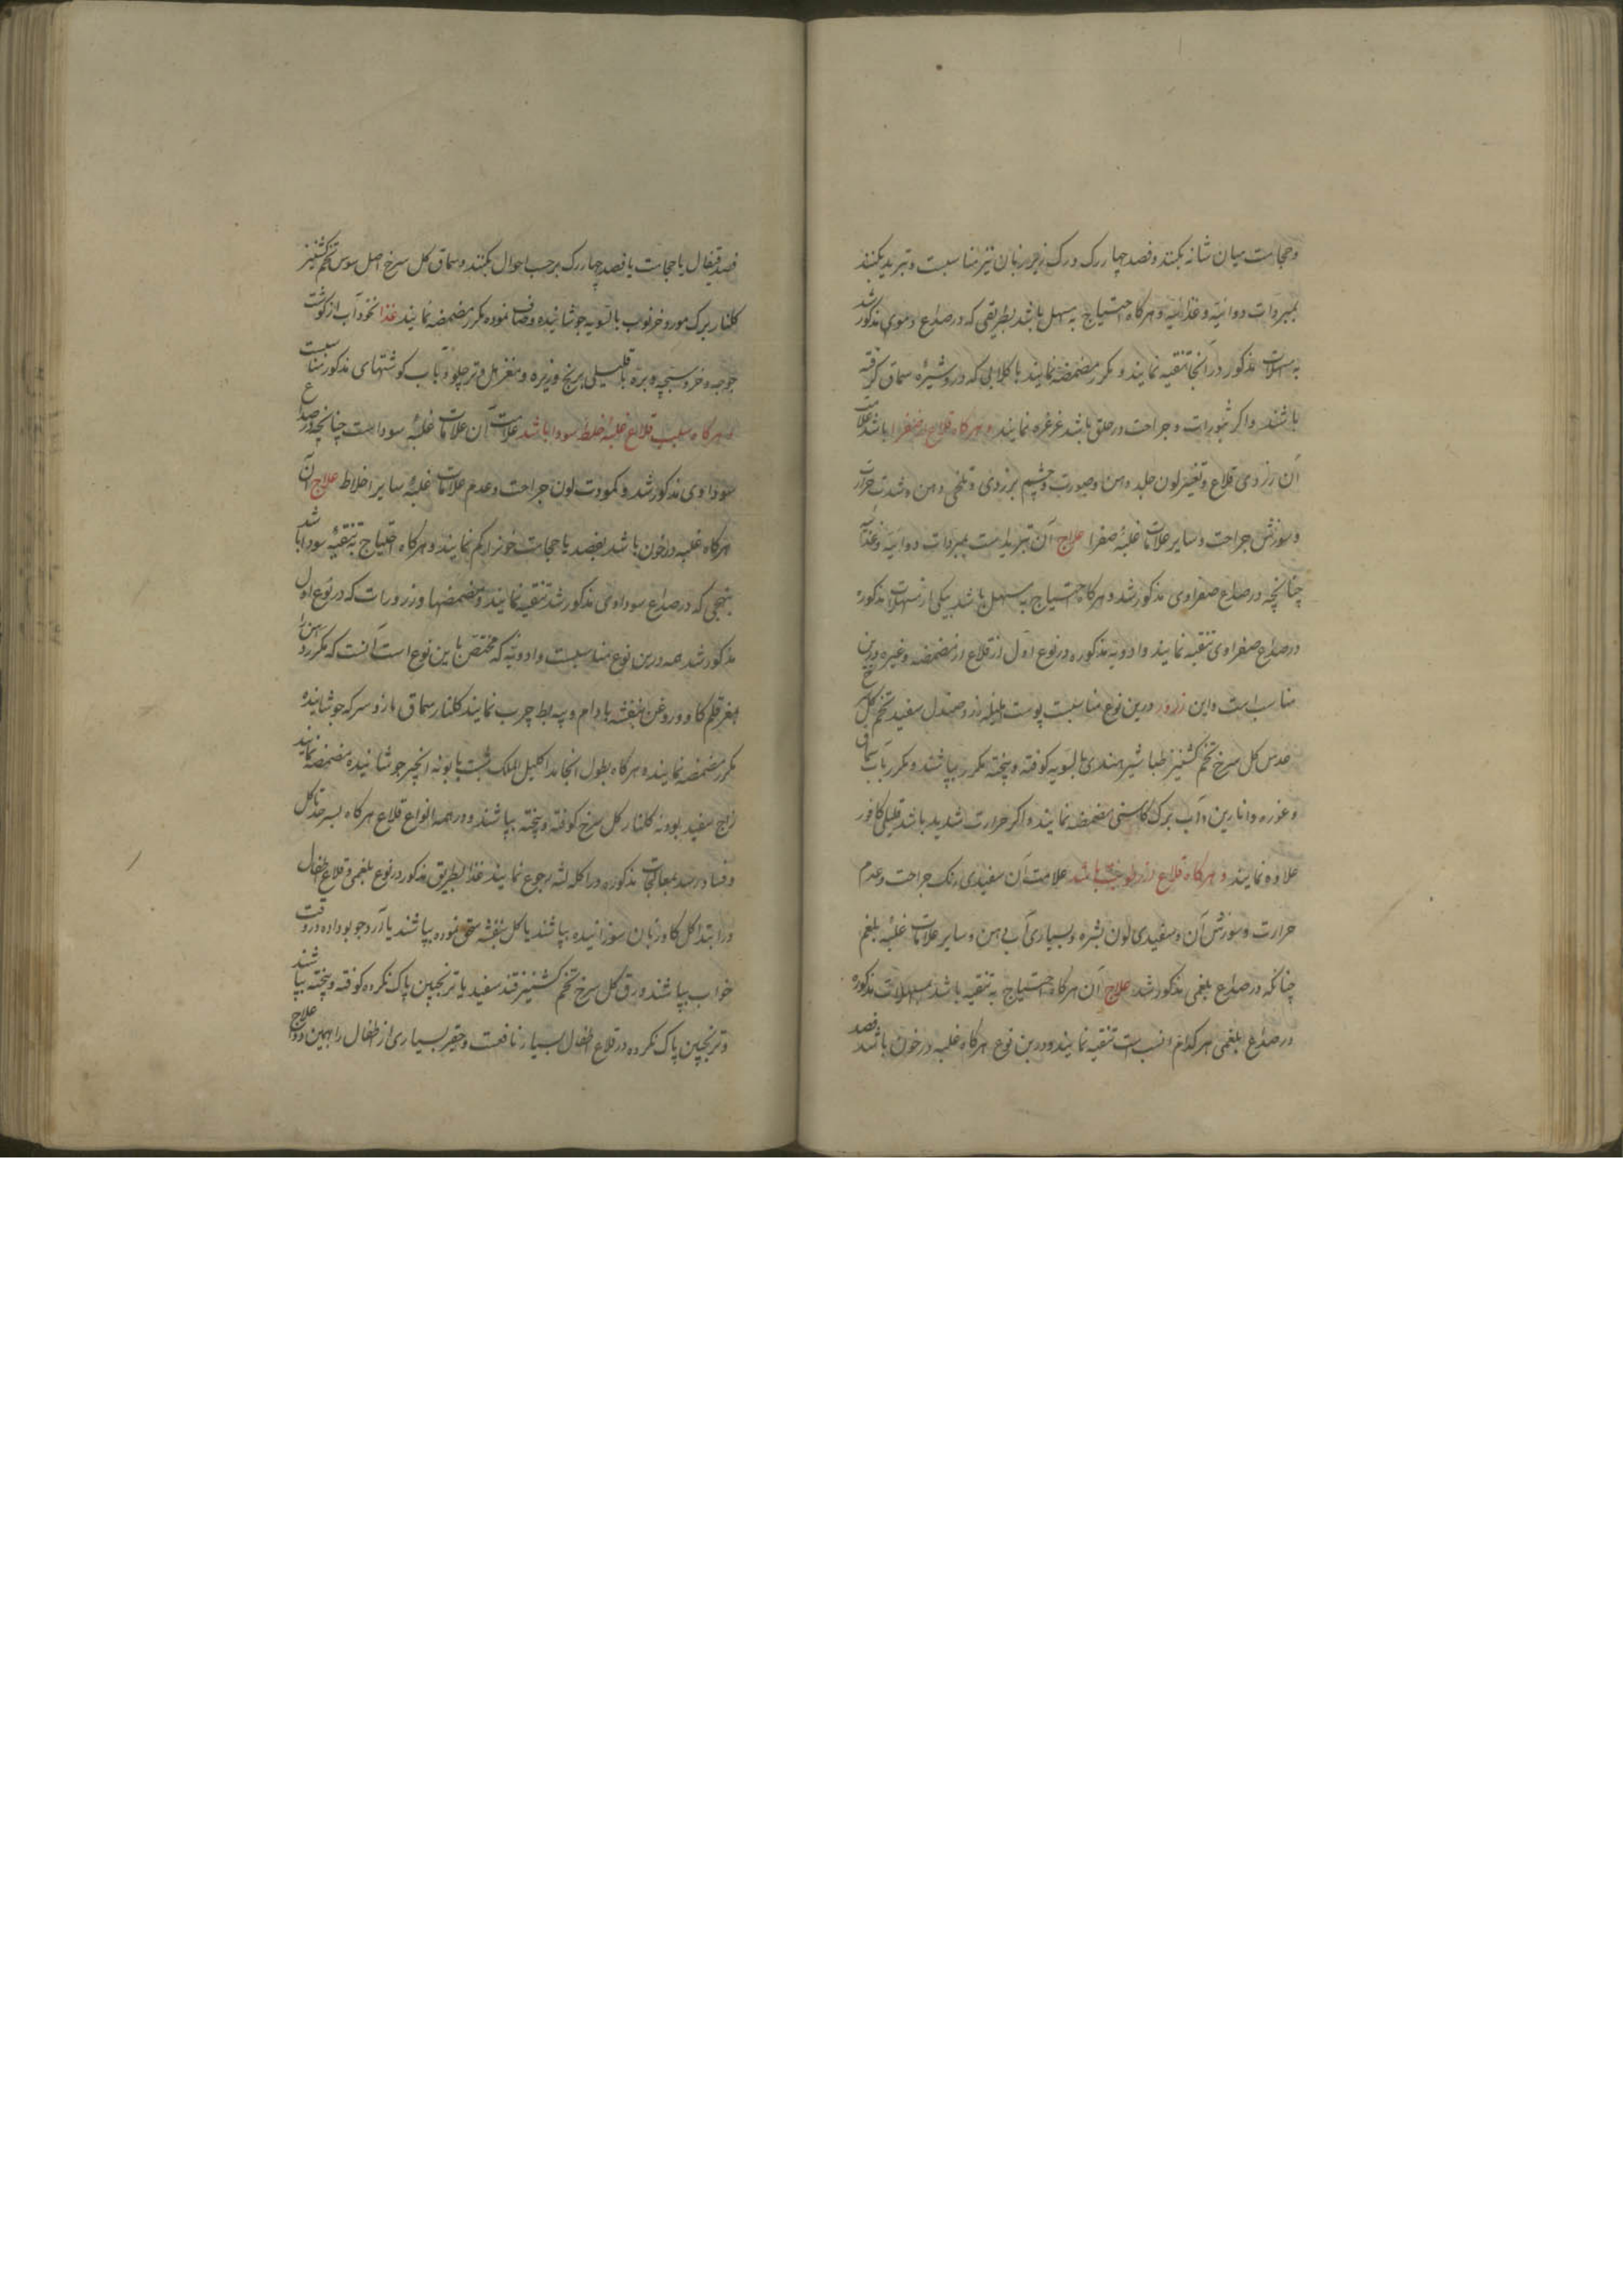 وحجامت میان شانه بکنند و فصد چهار رک و رک زیر زبان نیز مناسبست و تبرید بکنند
بمبردات دوائیه و غذائیه و هرکاه احتیاج به مسهل باشد بطریقی که در صداع دموی مذکور شد
به مسهلات مذکور در آنجا تنقیه نمایند و مکرر مضمضه نمایند با کلابی که در و شیره سماق کرفته
باشند و اکر بثورات و جراحت در حلق باشد غرغره نمایند و هرکاه قلاع از صفرا باشد علامت
آن زردی قلاع و تغیر لون جلد دهن و صورت و چشم بزردی و تلخی دهن و شدت حرارت
و سوزش جراحت و سایر علامات غلبهٔ صفرا علاج آن تبریدست بمبردات دوائیه و غذائیه
چنانچه در صداع صفراوی مذکور شد و هرکاه احتیاج به مسهل باشد بیکی از مسهلات مذکوره
در صداع صفراوی تنقیه نمایند و ادویه مذکوره در نوع اول از قلاع از مضمضه و غیره درین
مناسب است و این زرور درین نوع مناسبست پوست هلیله زرد صندل سفید تخم کل
عدس کل سرخ تخم کشنیز طباشیر هندی بالسویه کوفته و بیخته مکرر بپاشند و مکرر بآب سماق
و غوره و انارین و آب برک کاسنی مضمضه نمایند و اکر حرارت شدید باشد قلیلی کافور
علاوه نمایند و هرکاه قلاع از رطوبت باشد علامت آن سفیدی رنک جراحت و عدم
حرارت و سوزش آن و سفیدی لون بشره و بسیاری آب دهن و سایر علامات غلبهٔ بلغم
چنانکه در صداع بلغمی مذکور شد علاج آن هرکاه احتیاج به تنقیه باشد بمسهلات مذکوره
در صداع بلغمی هرکدام انسب است تنقیه نمایند و درین نوع هرکاه غلبه در خون باشد فصد
فصد قیفال یا حجامت یا فصد چهار رک برحسب احوال بکنند و سماق کل سرخ اصل سوس تخم کشنیز
کلنار برک مورد خرنوب بالسویه جوشانیده و صاف نموده مکرر مضمضه نمایند غذا نخود آب از کوشت
جوجه و خروسبچه و بره با قلیلی برنج و زیره و مغز هل و تر چلو و باب کوشتهای مذکور مناسبست
و هرکاه سبب قلاع غلبهٔ خلط سودا باشد علامت آن علامات غلبهٔ سوداست چنانچه در صداع
سوداوی مذکور شد و کمودت لون جراحت و عدم علامات غلبهٔ سایر اخلاط علاج آن
هرکاه غلبه در خون باشد بفصد یا حجامت خونرا کم نمایند و هرکاه احتیاج به تنقیه سودا باشد
بنهجی که در صداع سوداوی مذکور شد تنقیه نمایند و مضمضها و زرورات که در نوع اول
مذکور شد همه درین نوع مناسبست و ادویه که مختص باین نوع است آنست که مکرر دهن را
بمغز قلم کاو و روغن بنفشه بادام و پیه بط چرب نمایند کلنار سماق مازو سرکه جوشانیده
مکرر مضمضه نمایند و هرکاه بطول انجامد اکلیل الملک شبت بابونه انجیر جوشانیده مضمضه نمایند
زاج سفید بودنه کلنار کل سرخ کوفته و بیخته بپاشند و در همه انواع قلاع هرکاه بسرحد تاکل
و فساد رسد بمعالجات مذکوره در اکله لثه رجوع نمایند غذا بطریق مذکور در نوع بلغمی و قلاع اطفال
در ابتدا کل کاوزبان سوزانیده بپاشند یا کل بنفشه سحق نموده بپاشند یا آرد جو بوداده در وقت
خواب بپاشند ورق کل سرخ تخم کشنیز قند سفید یا ترنجبین پاک نکرده کوفته و بیخته بپاشند
و ترنجبین پاک نکرده در قلاع اطفال بسیار نافعست و حقیر بسیاری از اطفال را بهمین دوا علاج